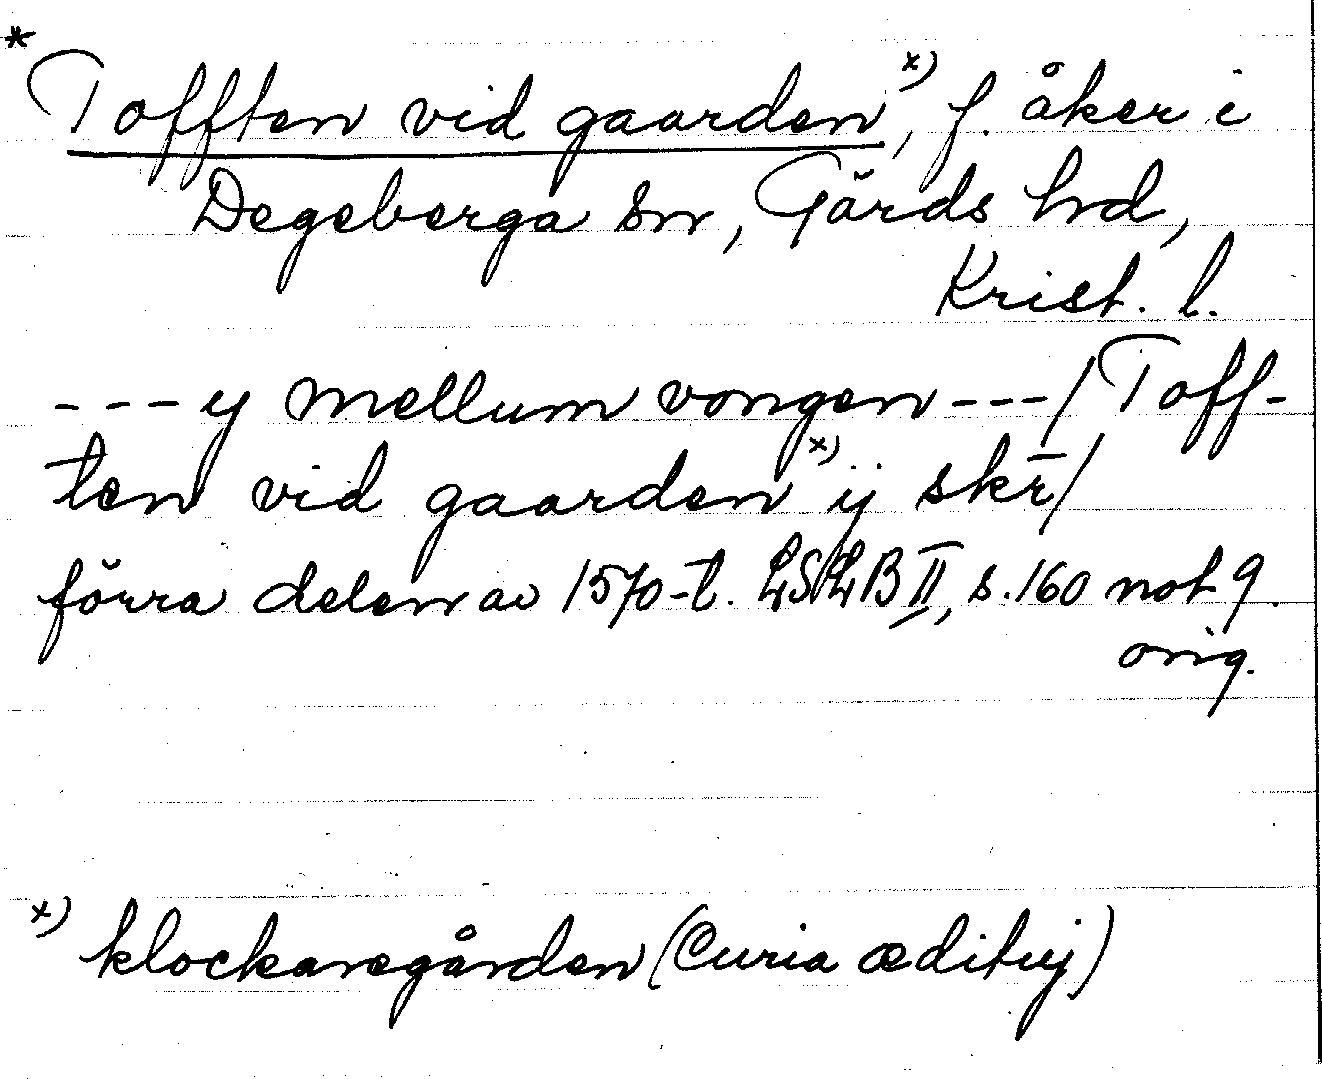 *
Tofften vid gaarden x), f. åker i
Degeberga sn, Gärds hd,
Krist. l.
---y mellum vongen---/Toff-
ten vid gaarden x) ij skr̄/
förra delen av 1570-t. LSLB II, s. 160 not 9.
orig.
x) klockaregården (Curia ædituj)